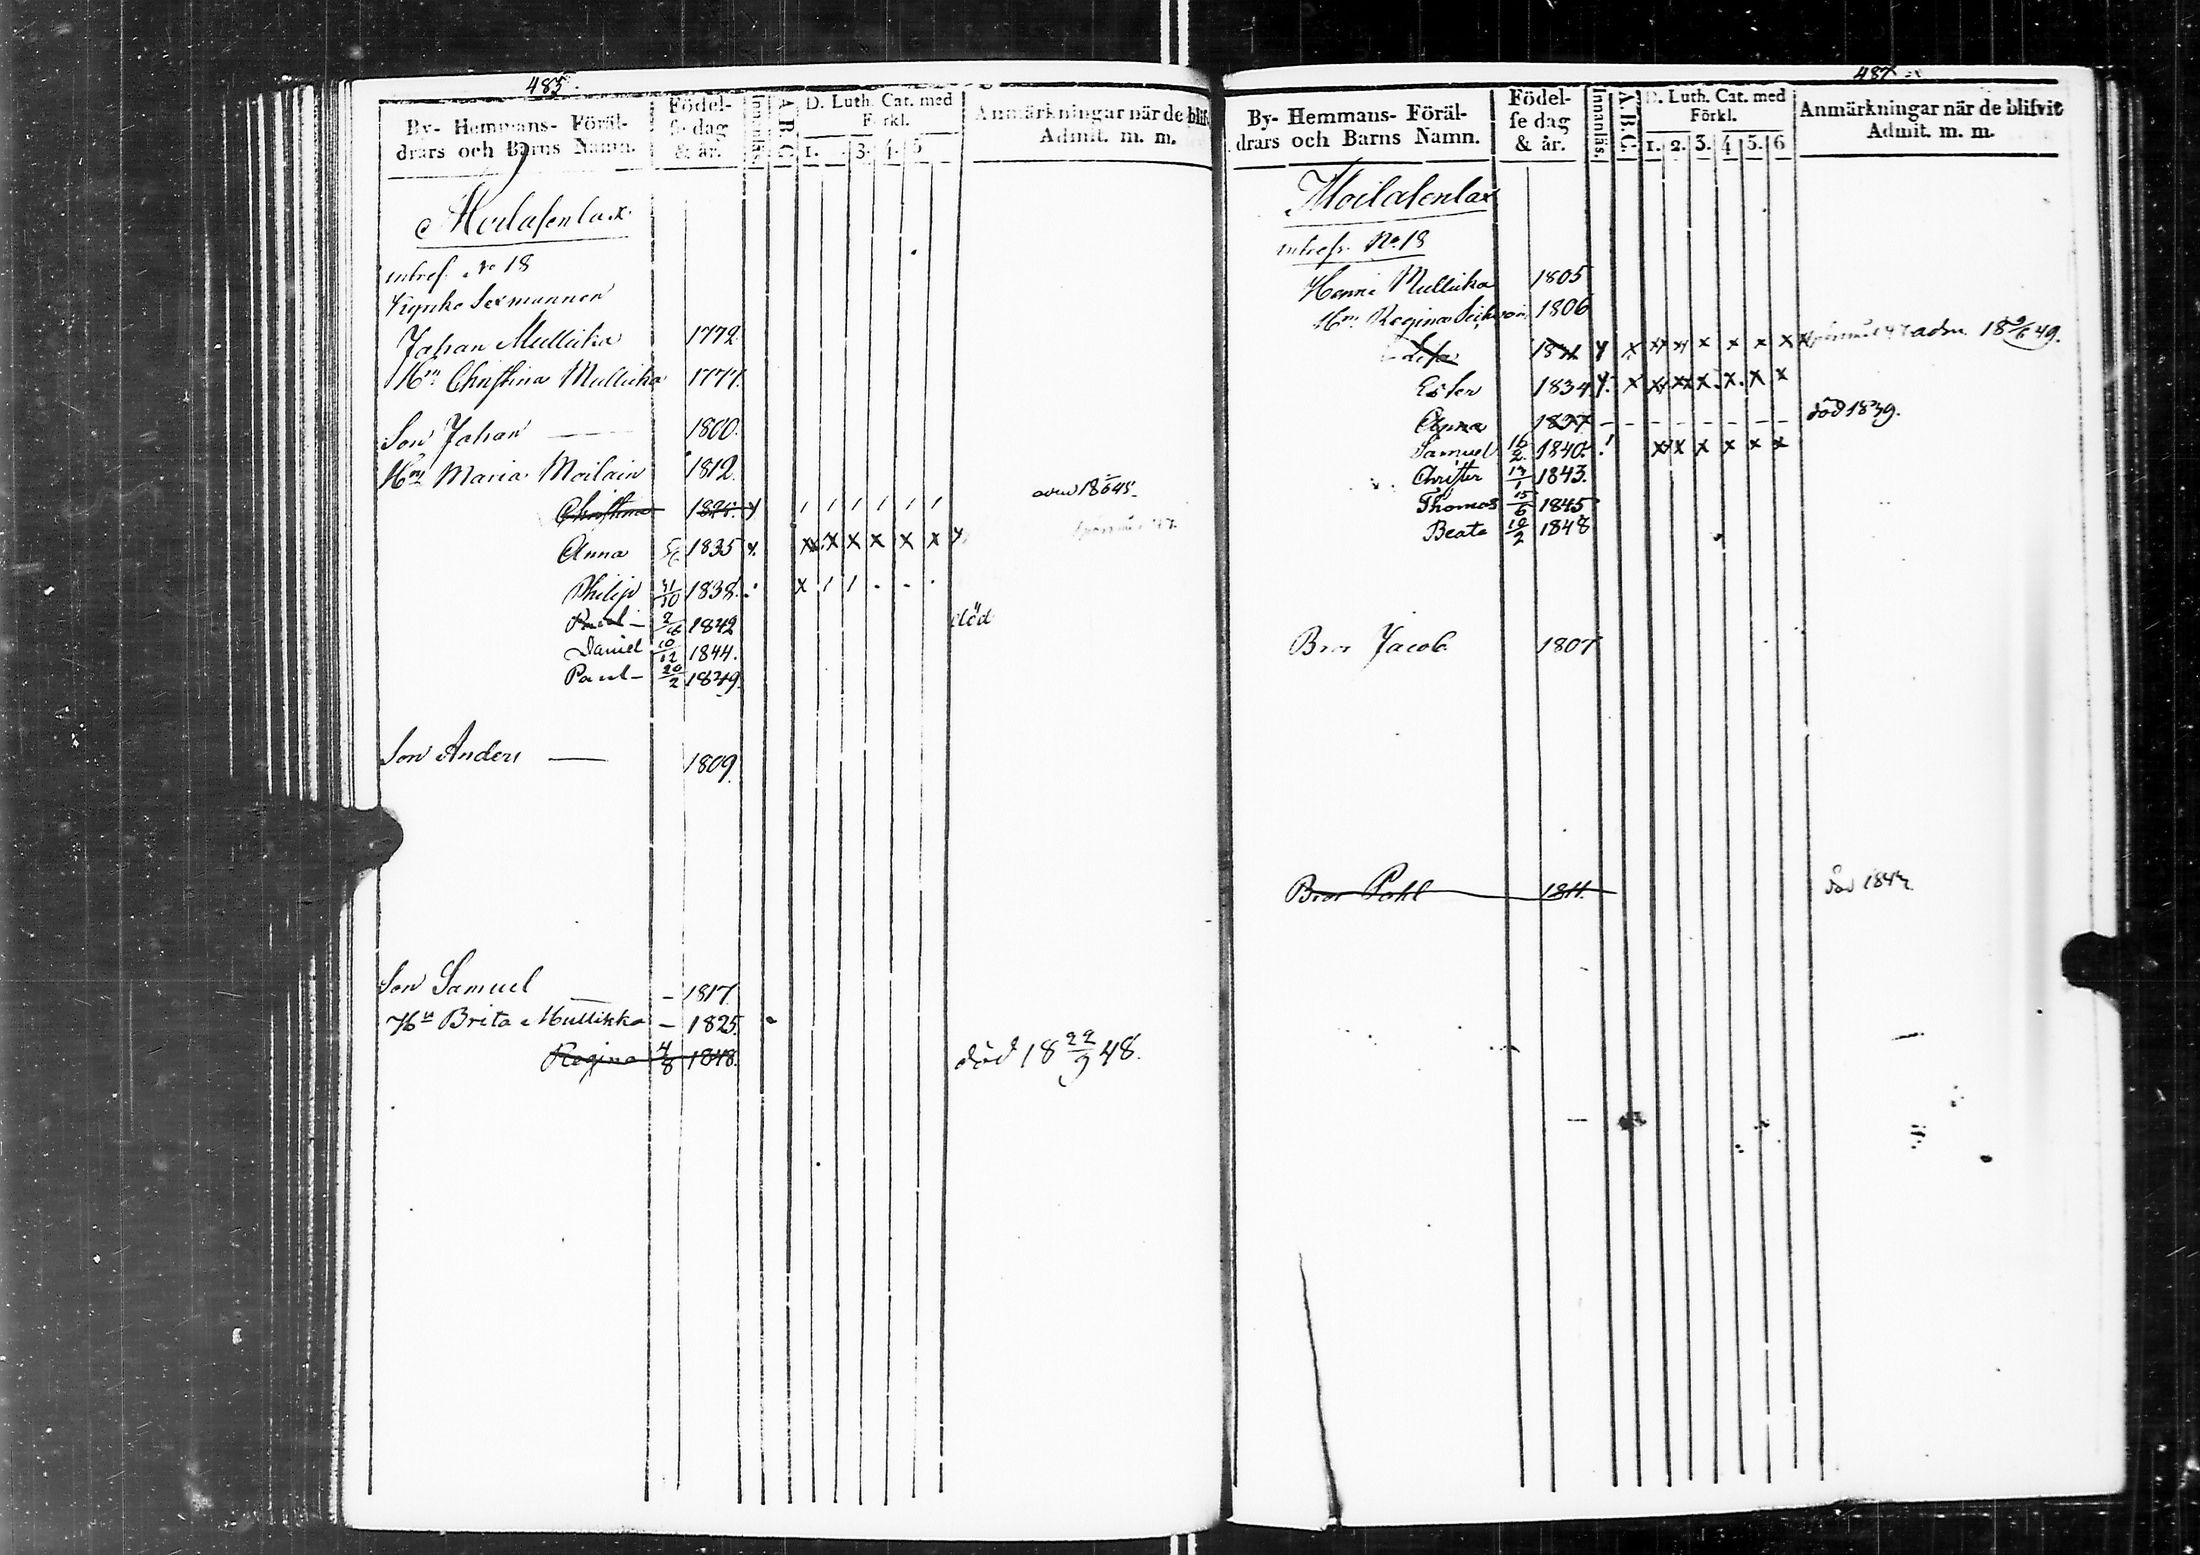 485.
By- Hemmans- Föräl-
drars och Barns Namn.
Födel-
se dag
& år.
A.B.C.
D. Luth. Cat. med
Förkl.
1. 3. 4. 5
Anmärkningar när de blif
Admit. m. m.
Moilasenlax
intress. No 18
Johan Mullikka 1772.
Hn Christina Mullikka 1777.
Son Johan — 1800.
Hn Maria Moilain 1812.
Christina 1828.
Anna 1835
Philip 31/10 1838.
död
1842
Daniel 10/12 1844.
Paul 20/2 1849.
Son Anders — 1809.
Son Samuel — 1817.
Hn Brita Mullikka — 1825.
Regina 4/8 1848. död 18 22/9 48.
487
By- Hemmans- Föräl-
drars och Barns Namn.
Födel-
se dag
& år.
Innanläs.
A.B.C.
D. Luth. Cat. med
Förkl.
1. 2. 3. 4 5. 6
Anmärkningar när de blifvit
Admit. m. m.
Moilasenlax
intress. No. 18
Mullikka 1805
Hn Regina 1806
Lisa 1831 adm. 49.
Ester 1834
Anna 1837 död 1839.
Samuel 16/2 1840.
Christer 1843.
Thomas 15/6 1845
Beata 1848
Bror Jacob 1807
Bror Pohl 1811. död